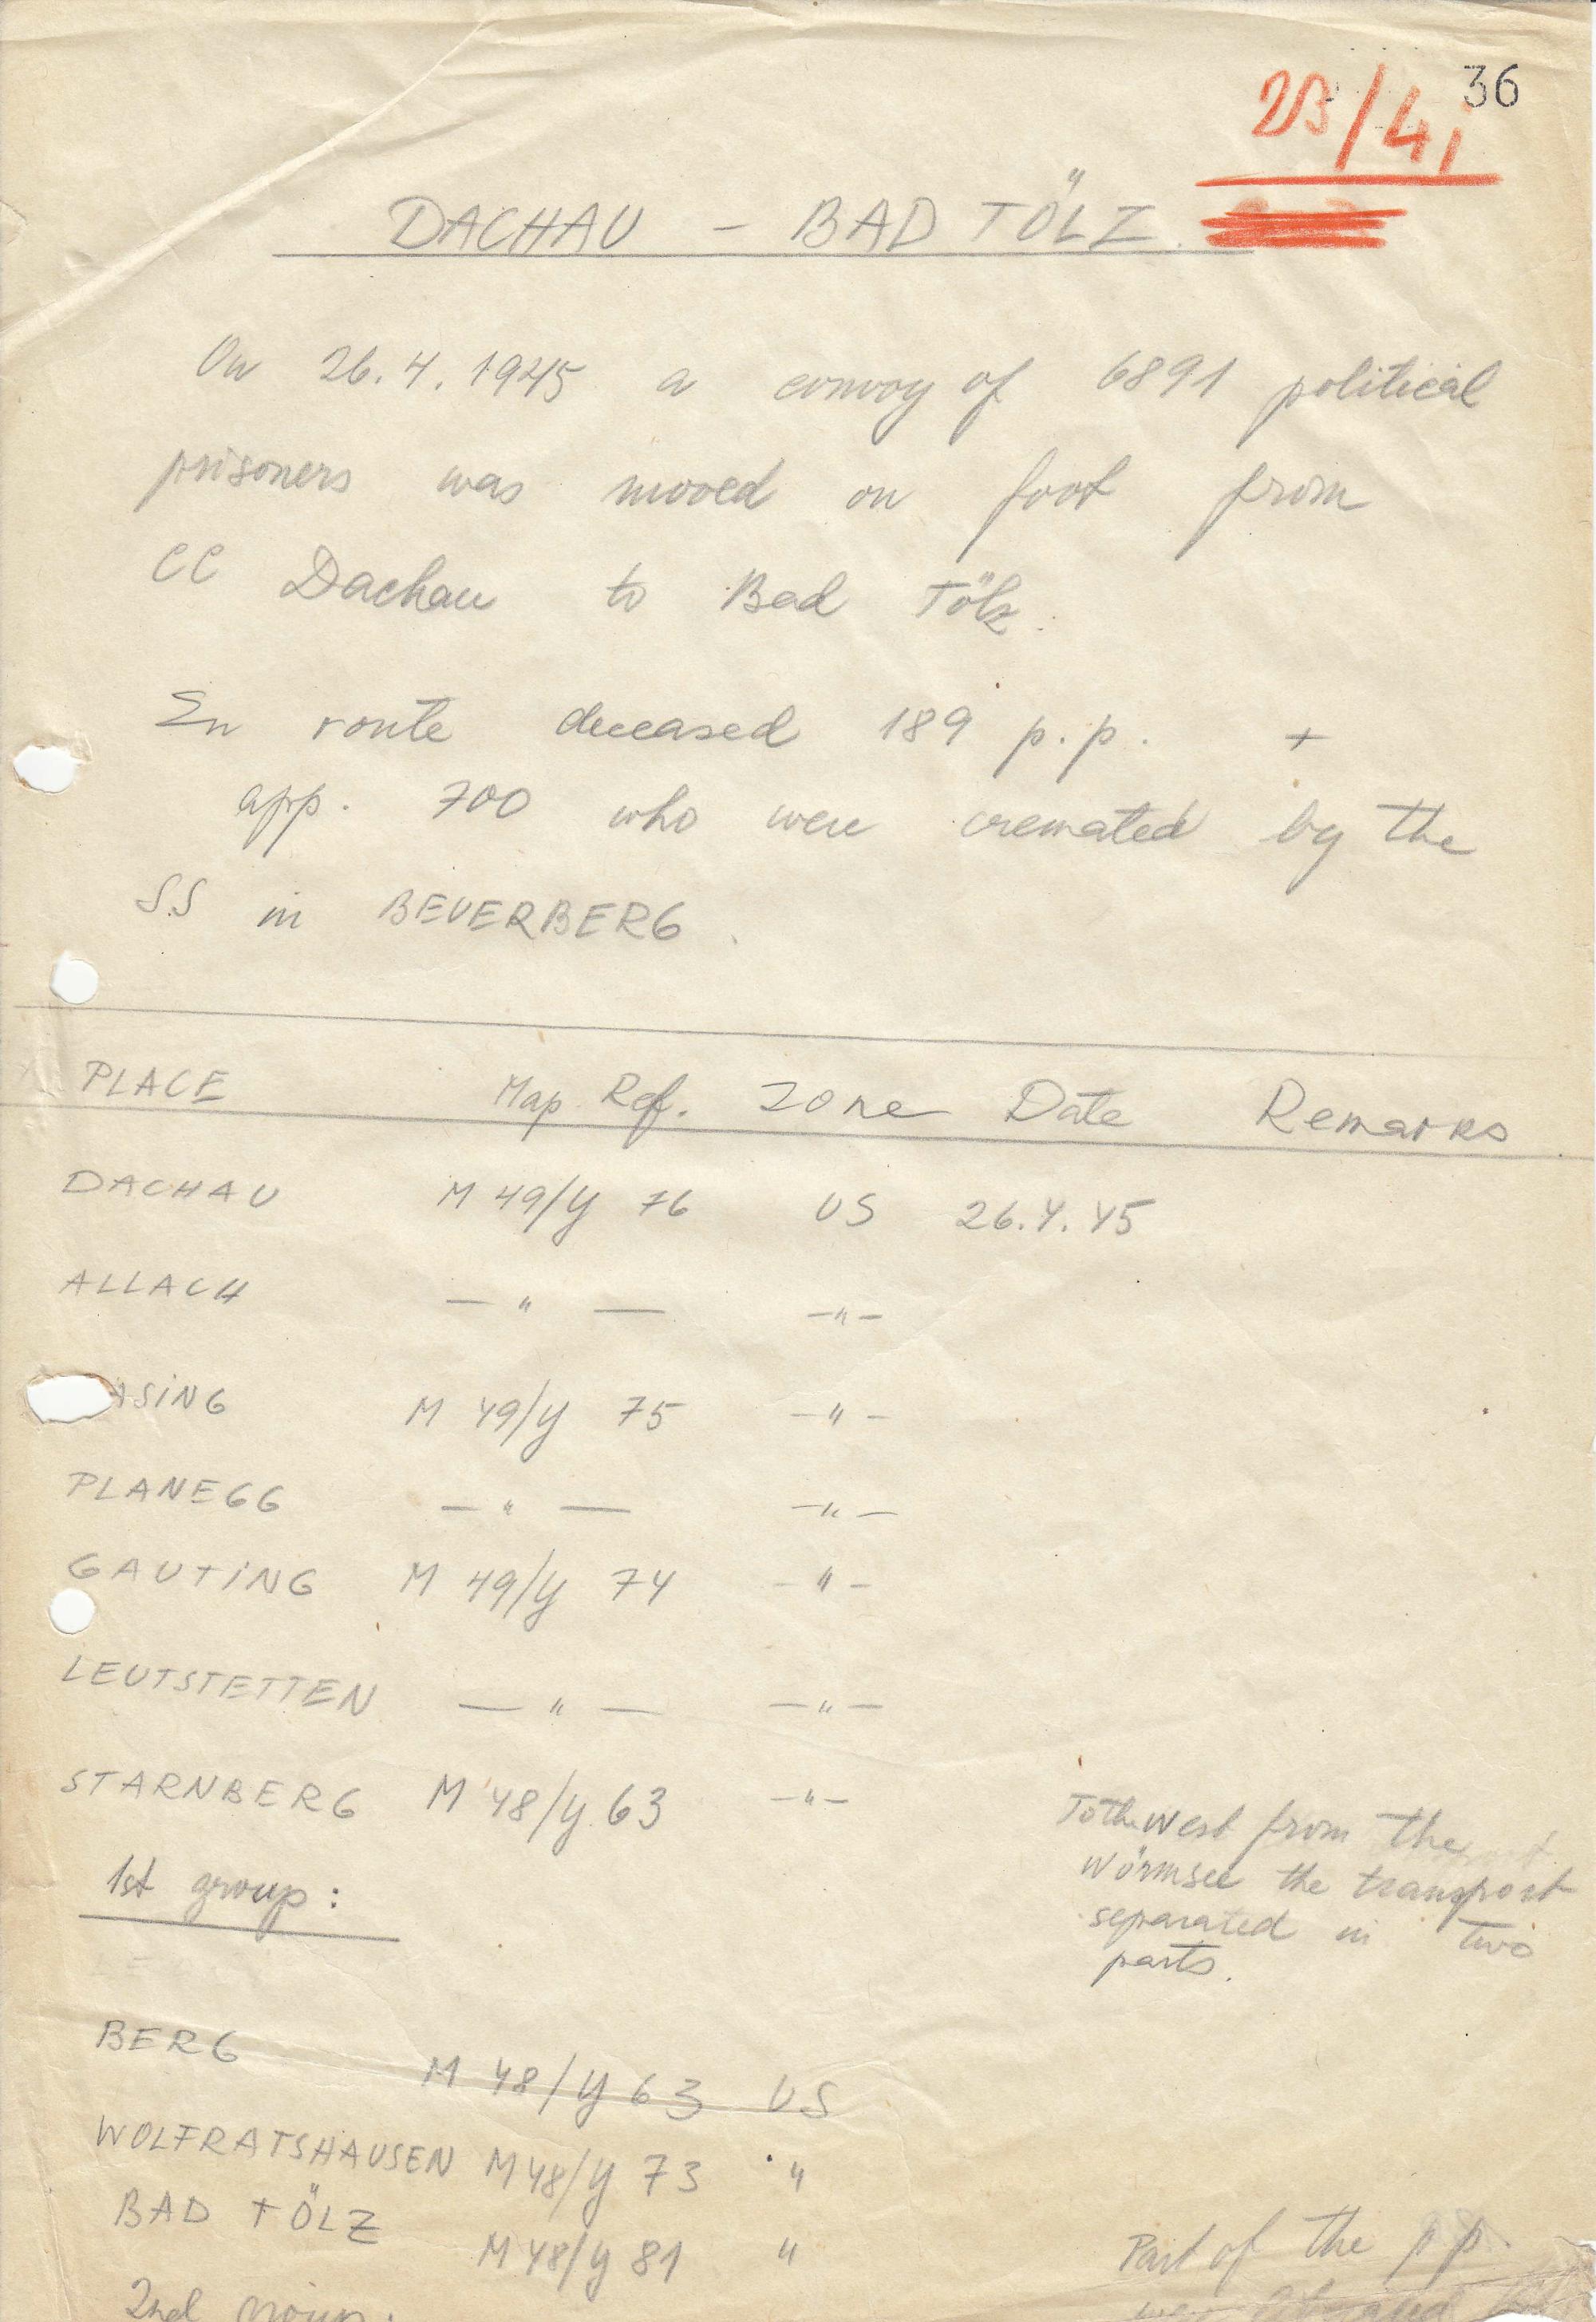 36
23/4i
DACHAU - BAD TÖLZ.
On 26.4.1945 a convoy of 6891 political
prisoners was moved on foot from
CC Dachau to Bad Tölz.
En route deceased 189 p.p. +
app. 700 who were cremated by the
S.S in BEUERBERG.
PLACE Map Ref. Zone Date Remarks
DACHAU M 49/Y 76 US 26.4.45
ALLACH — " — -"-
ASING M 49/Y 75 -"-
PLANEGG — " — -"-
GAUTING M 49/Y 74 -"-
LEUTSTETTEN — " — -"-
STARNBERG M 48/Y 63 -"-
To the West from the
Würmsee the transport
separated in two
parts.
1st group:
BERG M 48/Y 63 US
WOLFRATSHAUSEN M 48/Y 73 "
BAD TÖLZ M 48/Y 81 "
Part of the p p.
2nd group: